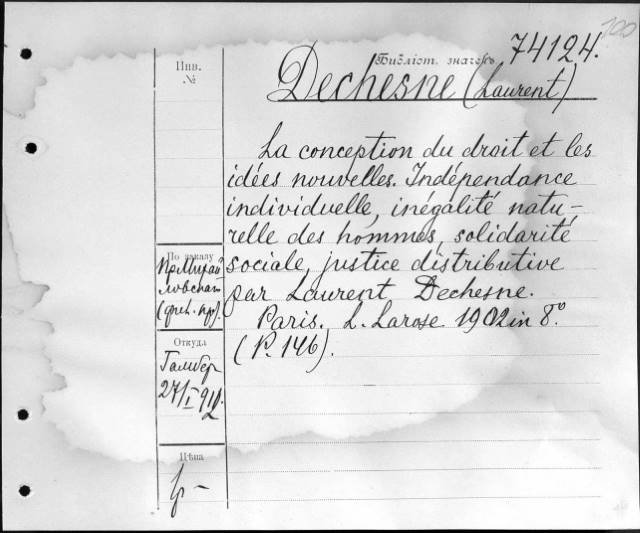 100
Библіот. значекъ 74124.
Dechesne (Laurent)
Инв.
№
La conception du droit et les
idées nouvelles. Indépendance
individuelle, inégalité natu-
relle des hommes, solidarité
sociale, justice distributive
par Laurent Dechesne.
Paris. L. Larose 1902 in 8º.
(P. 146).
По заказу
Откуда
27/I 912.
Цѣна